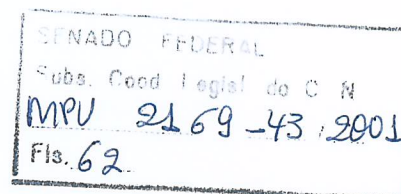 SENADO FEDERAL
Subs. Coord. Legisl. do C. N.
MPV 2169-43, 2001
Fls. 62